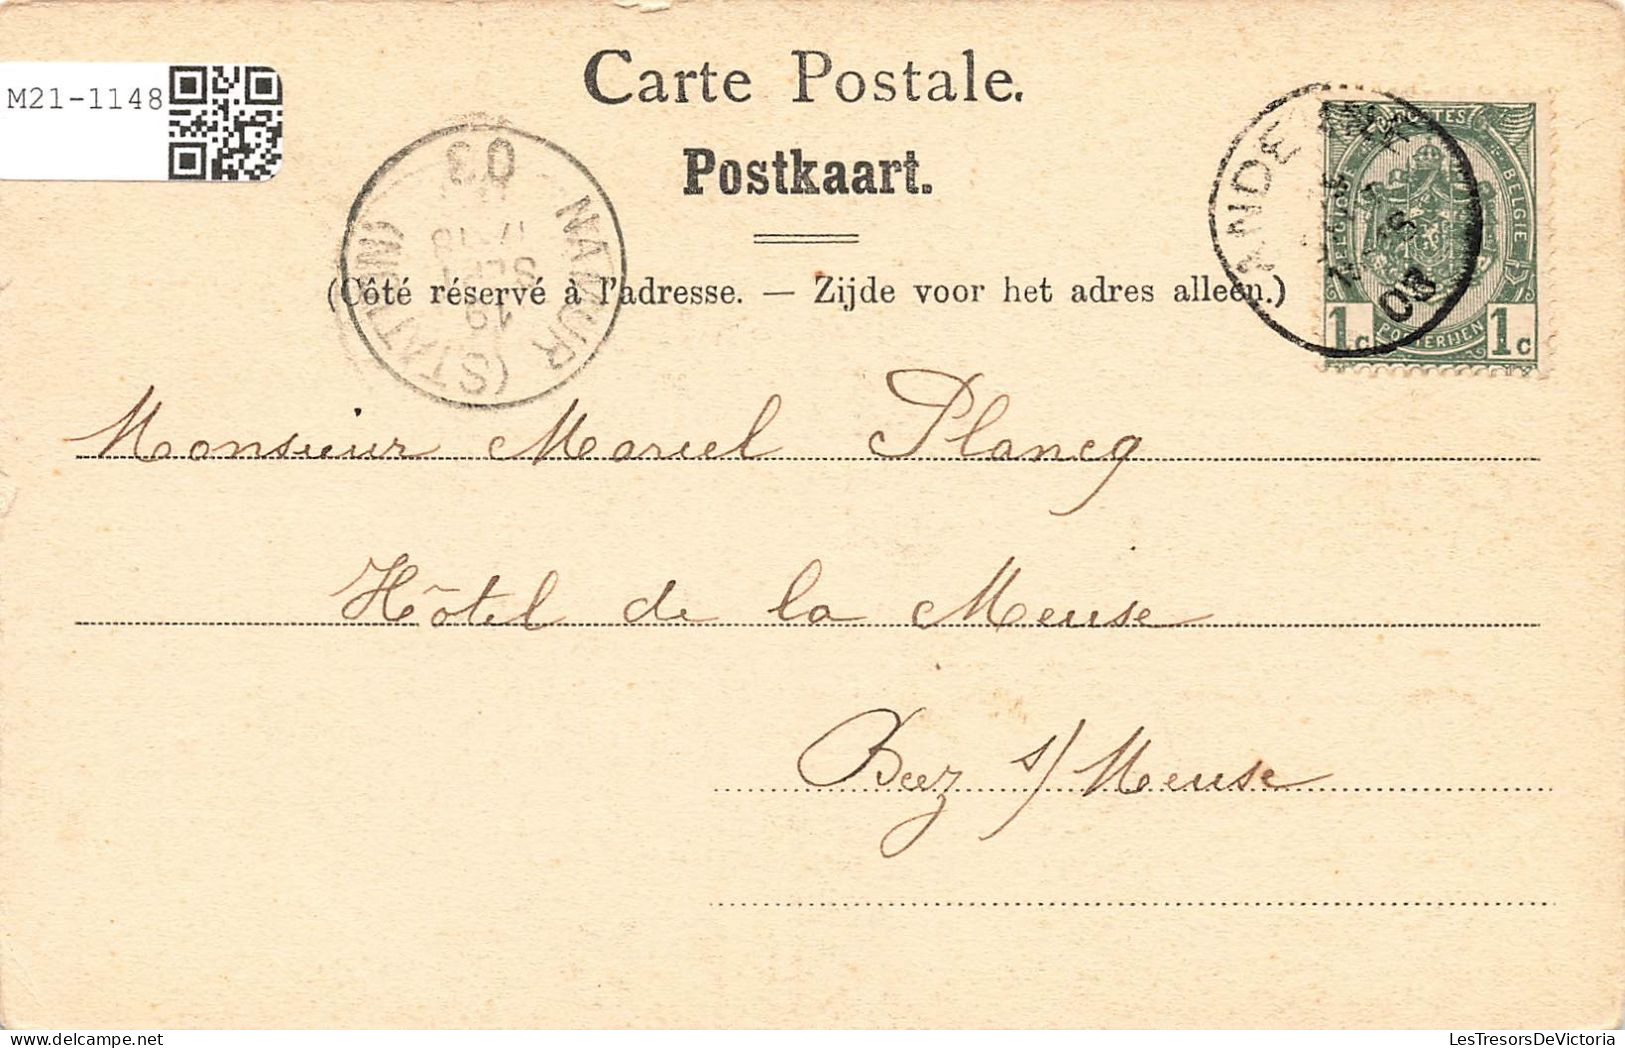 M21-1148
Carte Postale.
Postkaart.
(Côté réservé à l'adresse. — Zijde voor het adres alleen.)
NAMUR (STATION)
19
SEPT
17-18
03
ANDENNE
03
POSTES
BELGIQUE
BELGIE
POSTERIJEN
1c 1c
Monsieur Marcel Plancq
Hôtel de la Meuse
Beez s/Meuse
LesTresorsDeVictoria